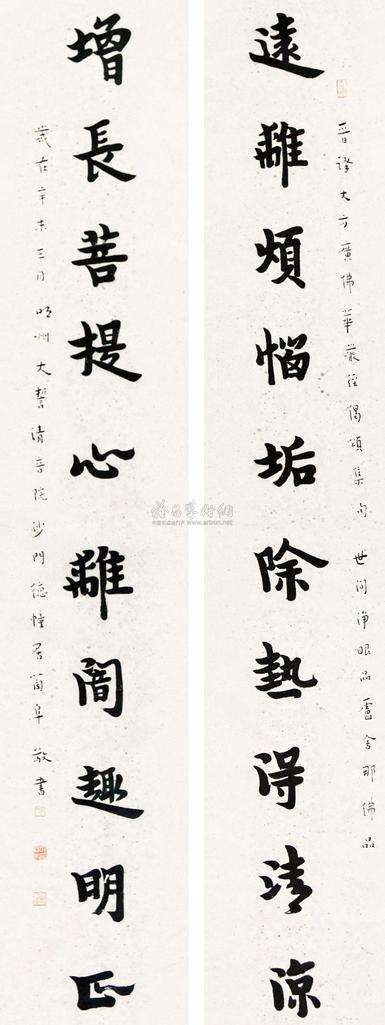 晉譯大方廣佛華嚴經偈頌集句 世間淨眼品盧舍那佛品
遠離煩惱垢除熱得清涼
增長菩提心離闇趣明正
歲在辛未三月明州大誓清音院沙門德幢居蘭阜敬書
www.artron.net